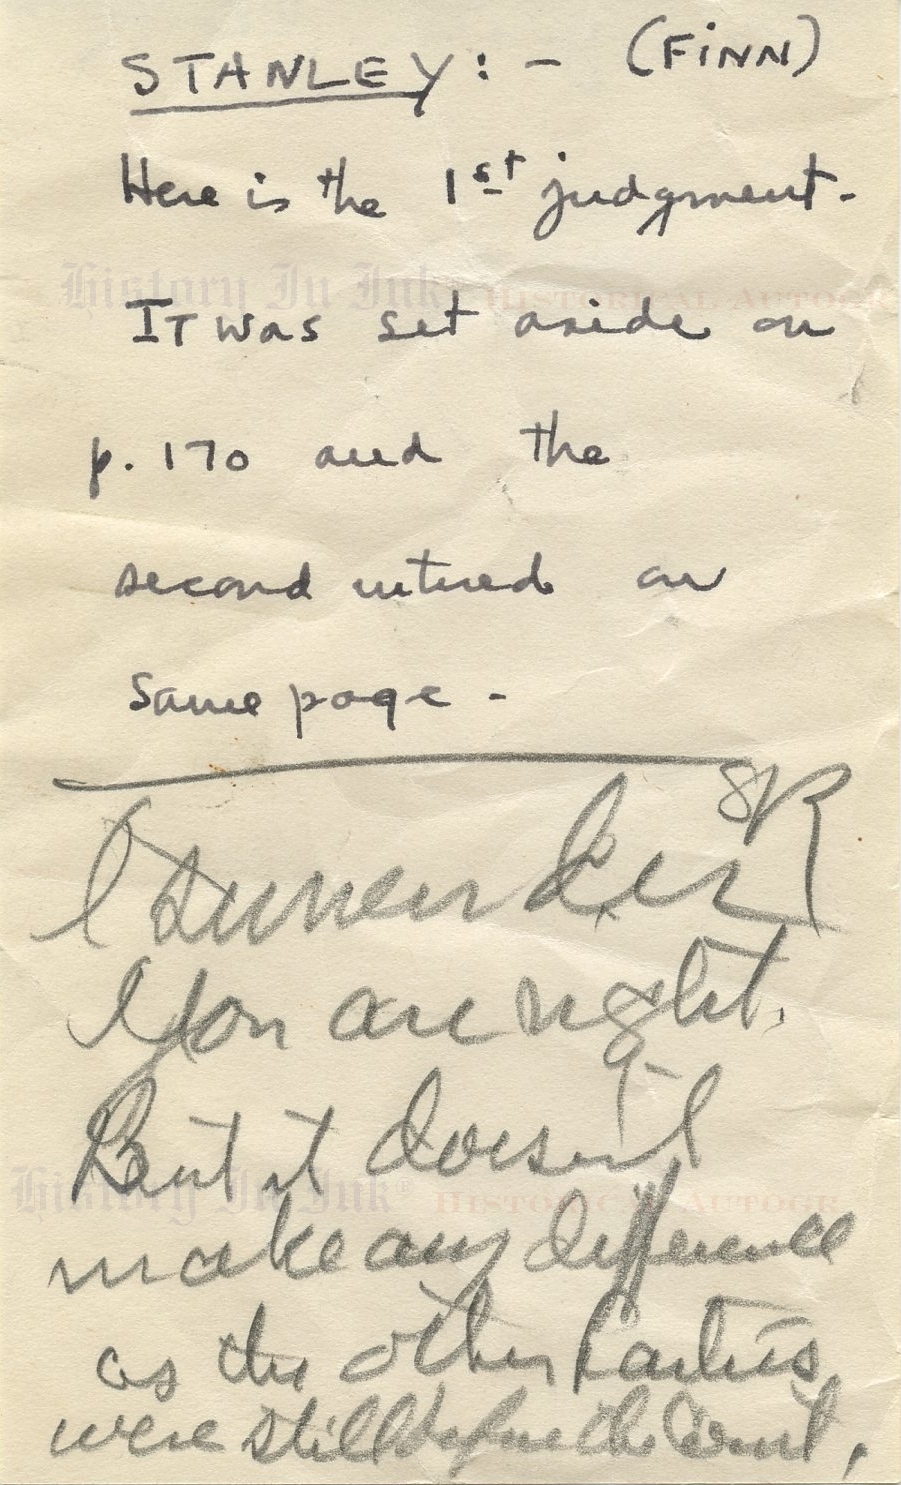 STANLEY: - (FINN)
Here is the 1st judgment -
History In Ink® HISTORICAL AUTOGR
It was set aside on
p. 170 and the
second entered on
same page -
SR
I surrender
You are right.
But it doesn't
History In Ink® HISTORICAL AUTOGR
make any difference
as the other parties
were still before the Court.